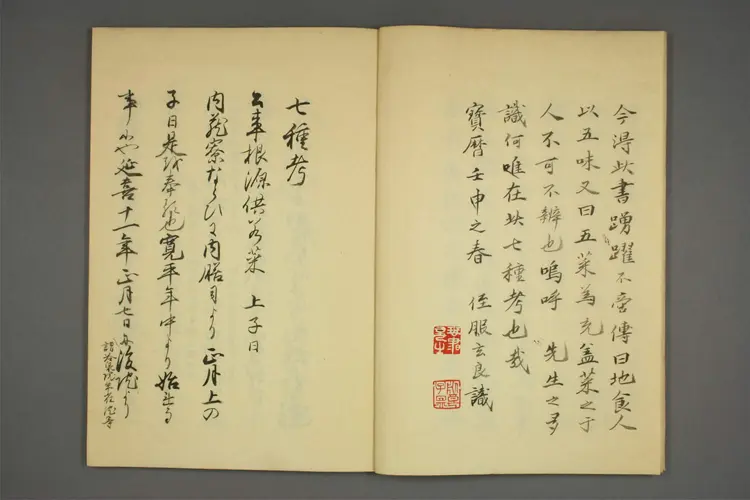 今得此書踴躍不啻傳曰地食人
以五味又曰五菜為充蓋菜之于
人不可不辨也嗚呼 先生之多
識何唯在此七種考也哉
寶曆壬申之春 侄眠玄良識
七種考
公事根源供若菜 上子日
内蔵寮ならひに内膳司より正月上の
子日是を奉る也寛平年中より始れる
事にや延喜十一年正月七日に後院より